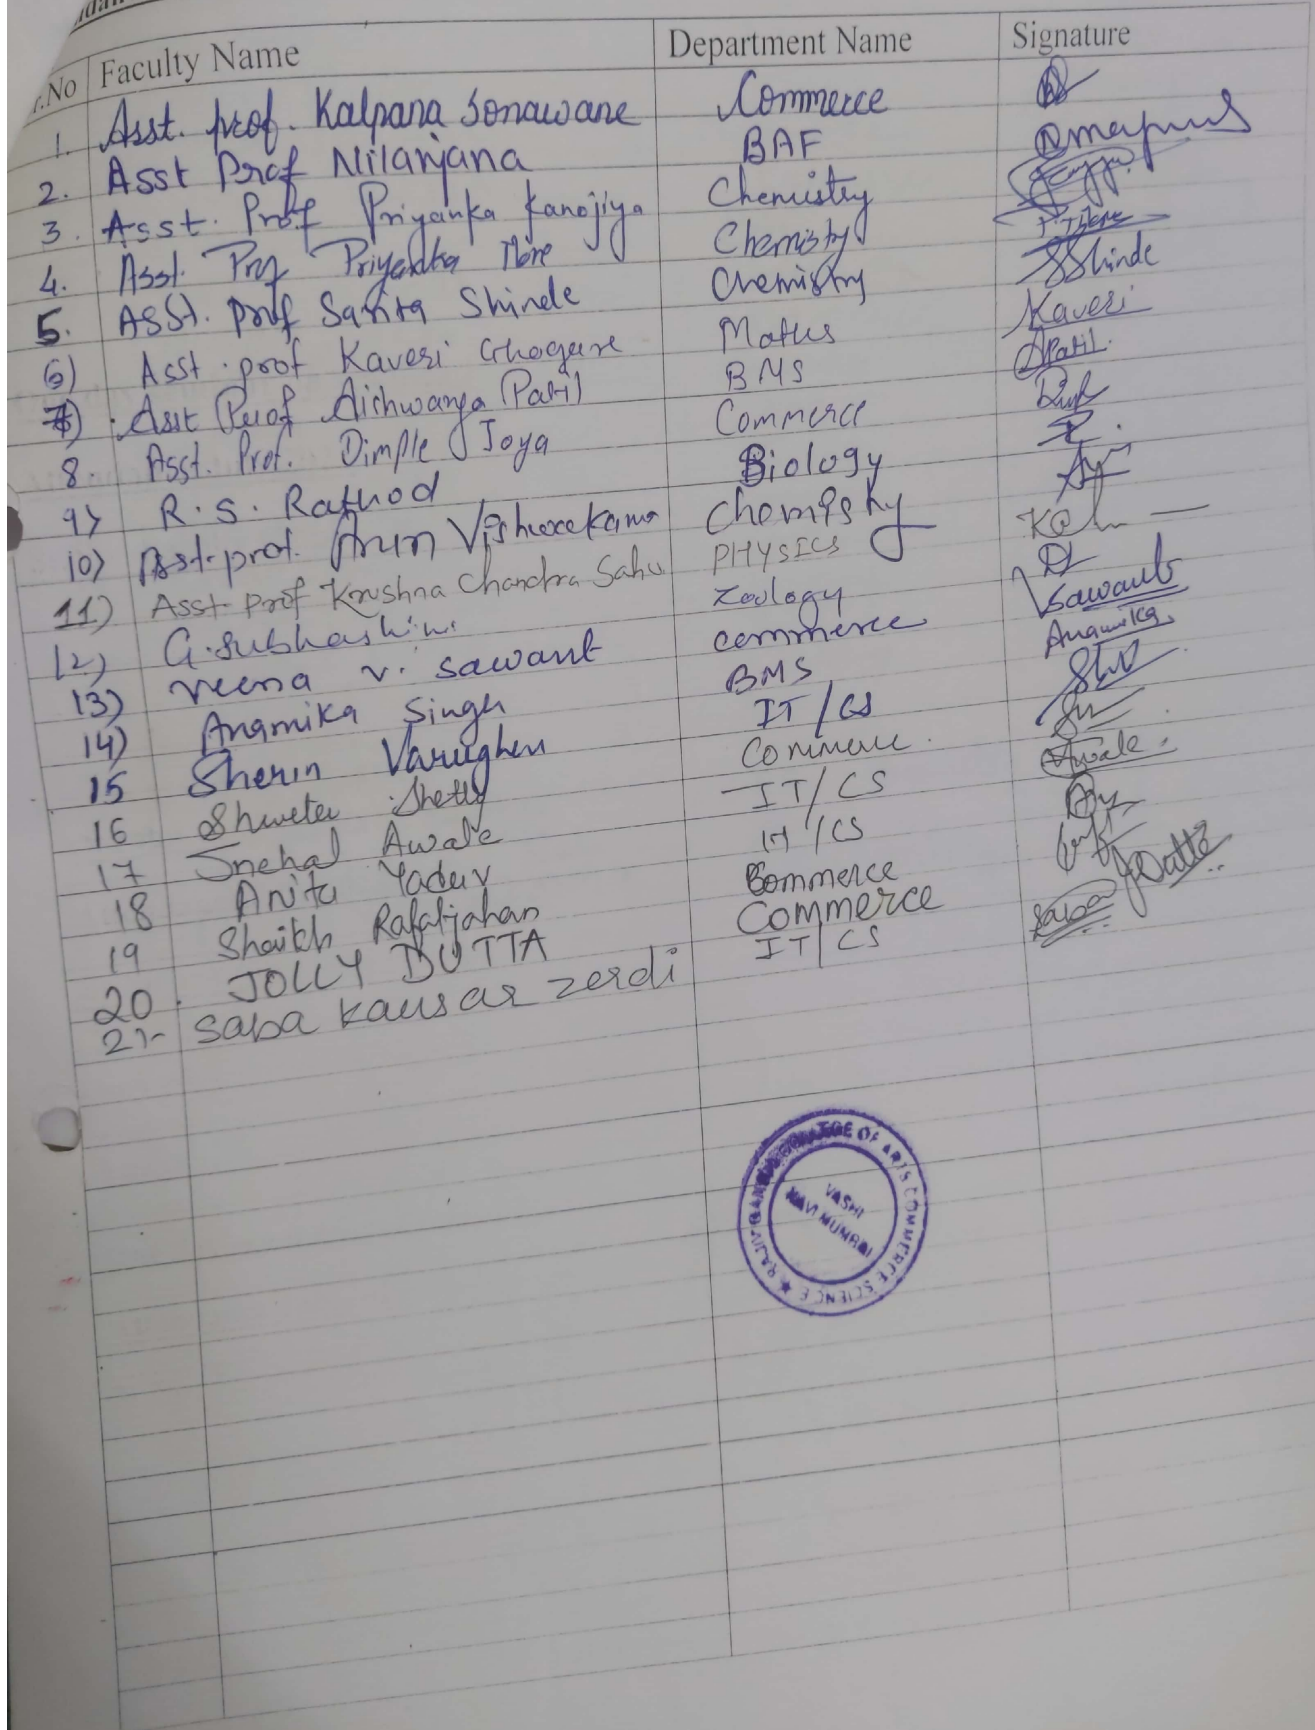 Sr.No Faculty Name Department Name Signature
1. Asst. prof. Kalpana Sonawane Commerce
2. Asst Prof Nilanjana BAF
3. Asst. Prof Priyanka Kanojiya Chemistry
4. Asst. Prof Priyanka More Chemistry
5. Asst. Prof Sarita Shinde Chemistry SShinde
6) Asst. prof Kaveri Ghogare Maths Kaveri
7) Asst Prof Aishwarya Patil BMS APatil
8. Asst. Prof. Dimple Joya Commerce
9) R.S. Rathod Biology
10) Asst. prof. Arun Vishwakarma Chemistry
11) Asst prof Krushna Chandra Sahu PHYSICS
12) G. Subhashini Zoology
13) Veena V. Sawant commerce VSawant
14) Anamika Singh BMS Anamika
15 Sherin Varughese IT/CS
16 Shweta Shetty Commerce
17 Snehal Awale IT/CS Awale
18 Anita Yadav IT/CS
19 Shaikh Rafatjahan Commerce
20. JOLLY DUTTA Commerce JDutta
21- Saba kausar zerdi IT/CS Saba
RAJIV GANDHI COLLEGE OF ARTS COMMERCE SCIENCE ★
VASHI
NAVI MUMBAI